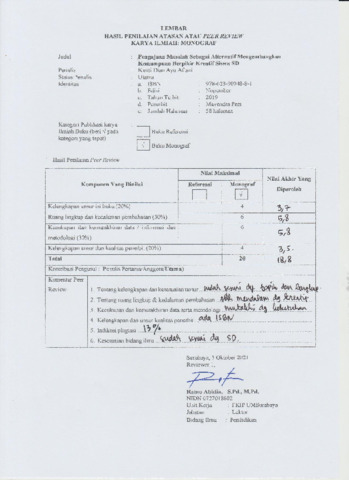 LEMBAR
HASIL PENILAIAN ATASAN ATAU PEER REVIEW
KARYA ILMIAH: MONOGRAF
Judul : Pengajuan Masalah Sebagai Alternatif Mengembangkan
Kemampuan Berpikir Kreatif Siswa SD
Penulis :
Status Penulis : Utama
Identitas : a. ISBN
b. Edisi : Nopember
c. Tahun Terbit : 2019
d. Penerbit :
e. Jumlah Halaman : 58 halaman
Kategori Publikasi karya
Ilmiah Buku (beri √ pada
kategori yang tepat)
Buku Referensi
√ Buku Monograf
Hasil Penilaian Peer Review
Komponen Yang Dinilai
Nilai Maksimal
Nilai Akhir Yang
Diperoleh
Referensi
Monograf
√
Kelengkapan unsur isi buku (20%) 4 3,7
Ruang lingkup dan kedalaman pembahasan (30%) 6 5,8
Kecukupan dan kemutakhiran data / informasi dan
metodologi (30%) 6 5,8
Kelengkapan unsur dan kualitas penerbit (20%) 4 3,5
Total 20 18,8
Komentar Peer
Review
1. Tentang kelengkapan dan kesesuaian unsur sudah sesuai dg topik dan lengkap
2. Tentang ruang lingkup & kedalaman pembahasan
3. Kecukupan dan kemutakhiran data serta metodologi
4. Kelengkapan dan unsur kualitas penerbit ada ISBN
5. Indikasi plagiasi : 13%
6. Kesesuaian bidang ilmu : sudah sesuai dg SD
Surabaya, 5 Oktober 2021
Reviewer
S.Pd., M.Pd.
Unit Kerja : FKIP UMSurabaya
Jabatan : Lektor
Bidang Ilmu : Pendidikan